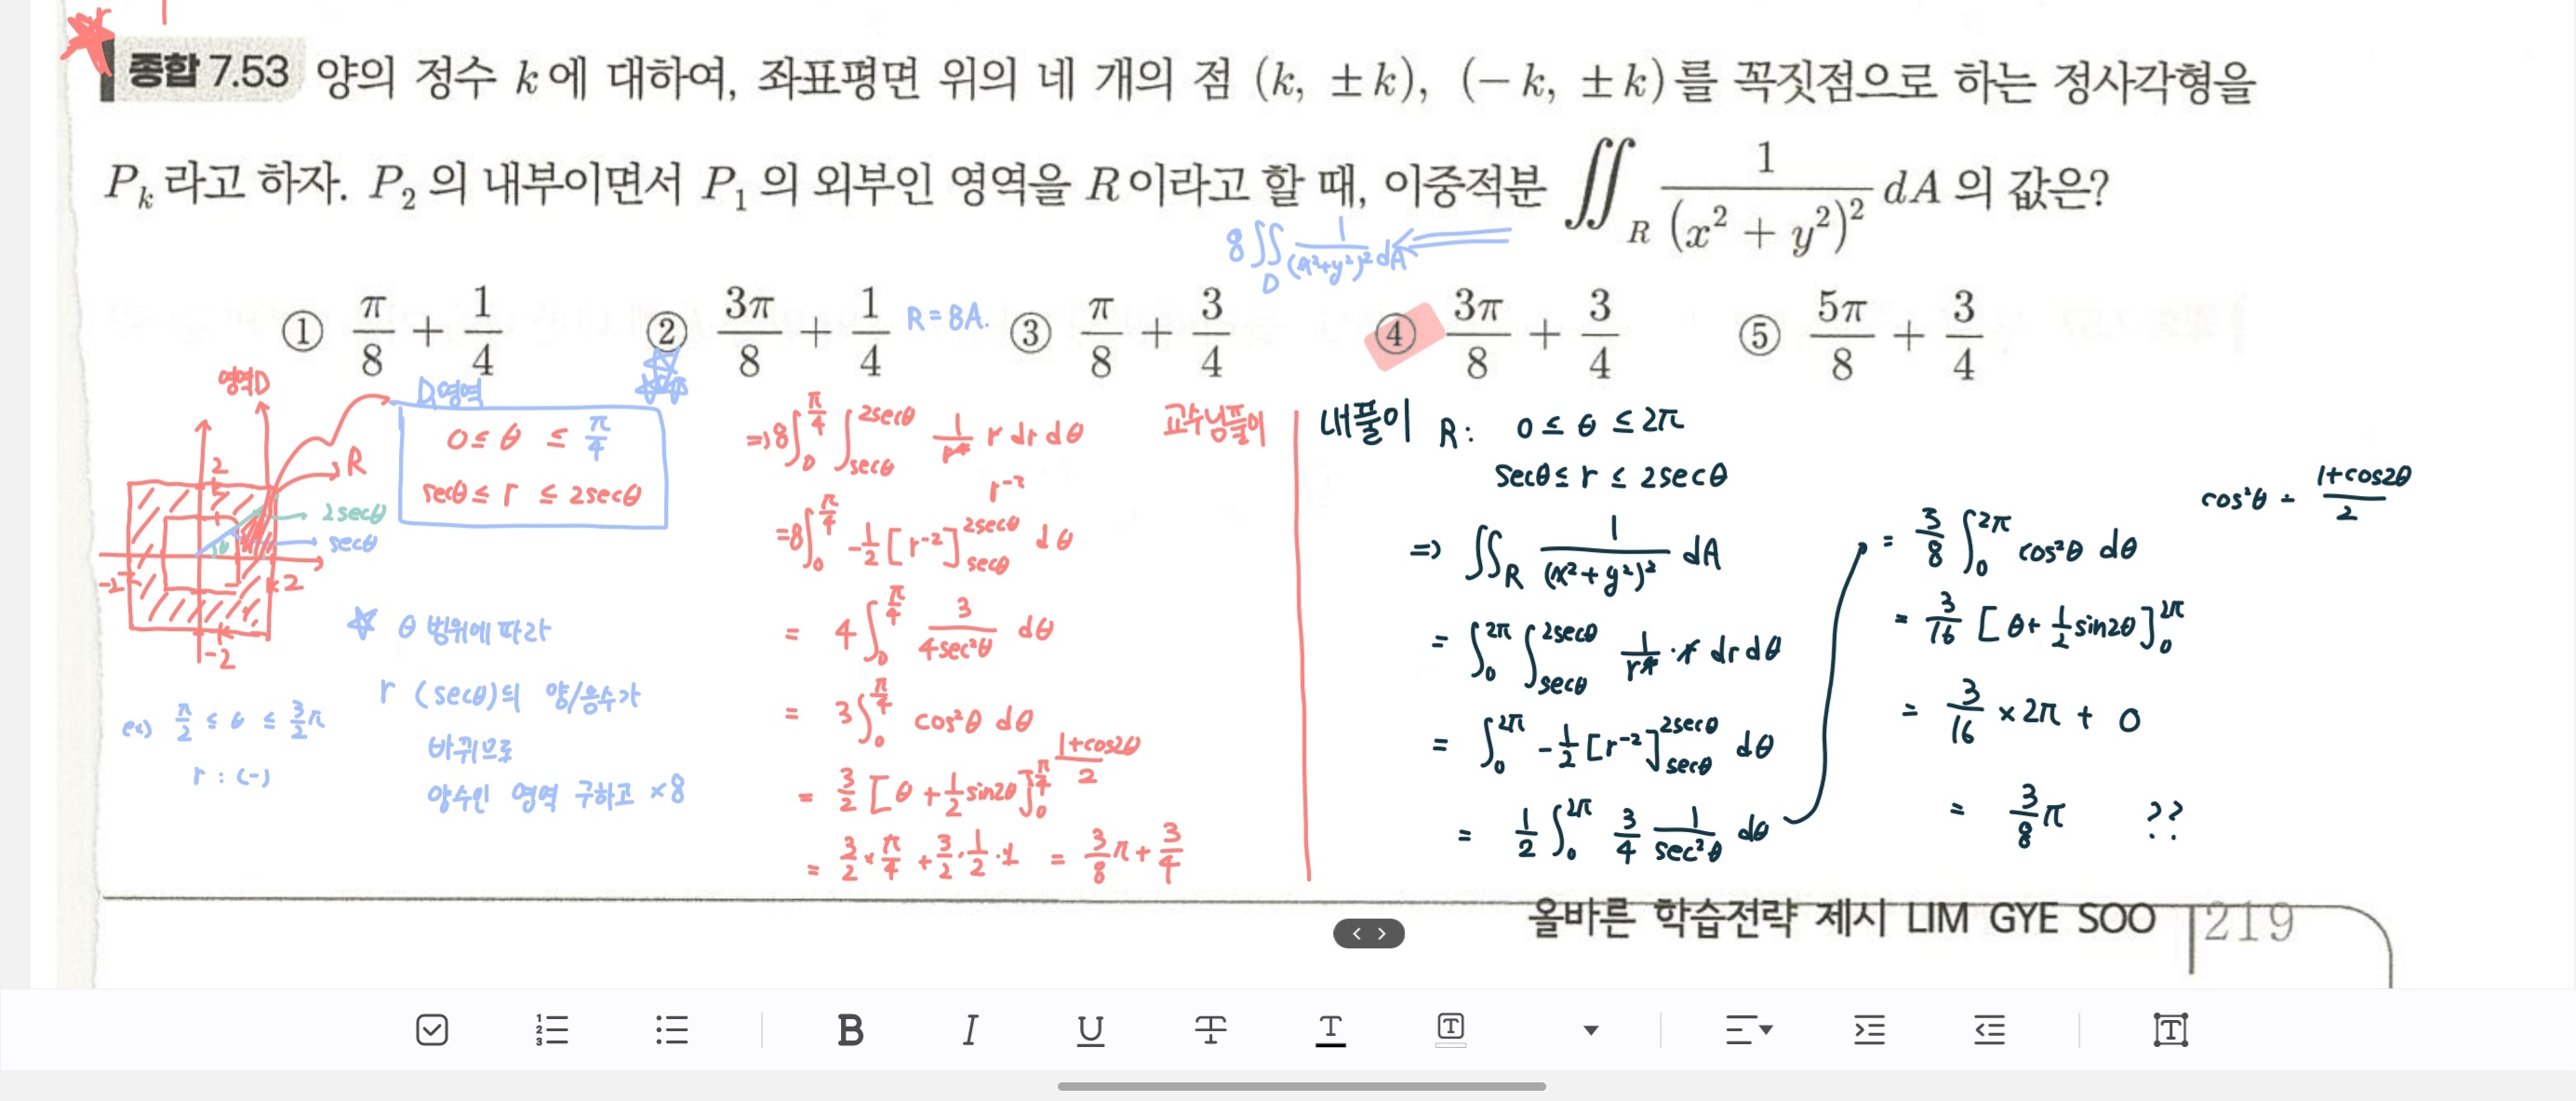 종합 7.53 양의 정수 k에 대하여, 좌표평면 위의 네 개의 점 (k, ±k), (−k, ±k)를 꼭짓점으로 하는 정사각형을
P_k라고 하자. P_2의 내부이면서 P_1의 외부인 영역을 R이라고 할 때, 이중적분 ∬_R 1/(x²+y²)² dA의 값은?
8∬_D 1/(x²+y²)² dA ⇐
① π/8 + 1/4 ② 3π/8 + 1/4 R=8A. ③ π/8 + 3/4 ④ 3π/8 + 3/4 ⑤ 5π/8 + 3/4
영역D
D영역
0 ≤ θ ≤ π/4
secθ ≤ r ≤ 2secθ
R
2
2secθ
secθ
θ
-2
2
-2
☆ θ 범위에 따라
r (secθ)의 양/음수가
바뀌므로
양수인 영역 구하고 ×8
ex) π/2 ≤ θ ≤ 3/2π
r : (-)
교수님풀이
⇒ 8∫_0^{π/4} ∫_{secθ}^{2secθ} 1/r⁴ r dr dθ
r⁻³
= 8∫_0^{π/4} -1/2 [r⁻²]_{secθ}^{2secθ} dθ
= 4∫_0^{π/4} 3/(4sec²θ) dθ
= 3∫_0^{π/4} cos²θ dθ
(1+cos2θ)/2
= 3/2 [θ + 1/2 sin2θ]_0^{π/4}
= 3/2 × π/4 + 3/2 · 1/2 · 1 = 3/8 π + 3/4
내풀이 R: 0 ≤ θ ≤ 2π
secθ ≤ r ≤ 2secθ
⇒ ∬_R 1/(x²+y²)² dA
= ∫_0^{2π} ∫_{secθ}^{2secθ} 1/r⁴ · r dr dθ
= ∫_0^{2π} -1/2 [r⁻²]_{secθ}^{2secθ} dθ
= 1/2 ∫_0^{2π} 3/4 1/sec²θ dθ
cos²θ = (1+cos2θ)/2
= 3/8 ∫_0^{2π} cos²θ dθ
= 3/16 [θ + 1/2 sin2θ]_0^{2π}
= 3/16 × 2π + 0
= 3/8 π ??
올바른 학습전략 제시 LIM GYE SOO 219